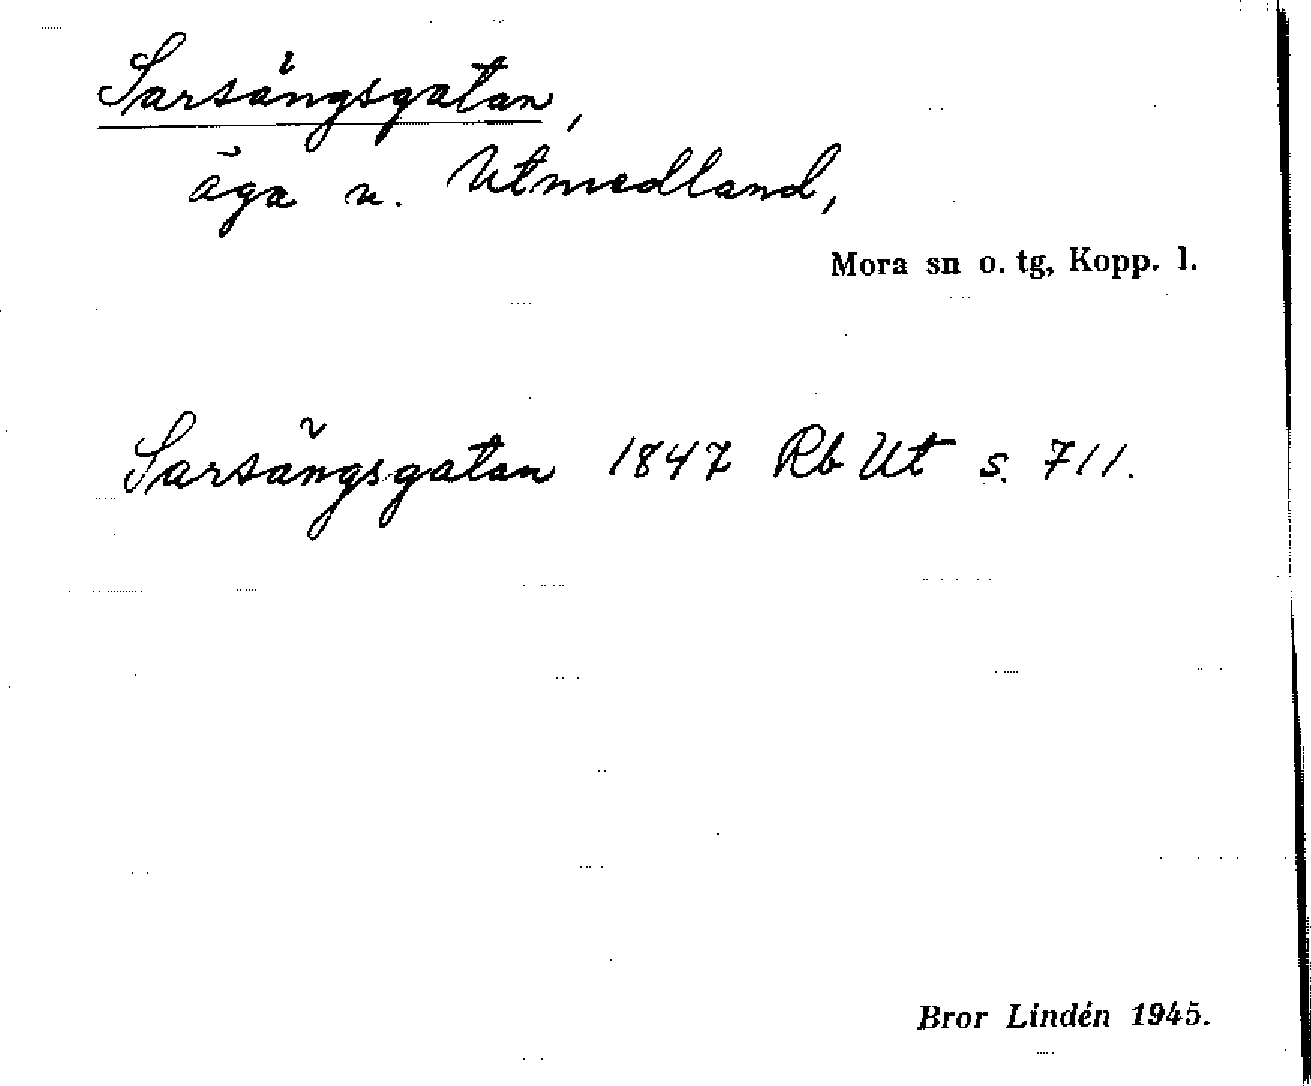 Sarsängsgatan,
äga u. Utmedland,
Mora sn o. tg, Kopp. l.
Sarsängsgatan 1847 Rb Ut s. 711.
Bror Lindén 1945.